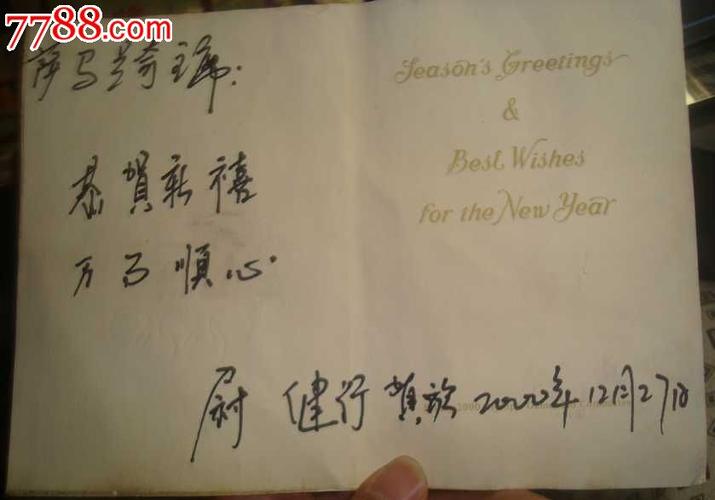 7788.com
萨马兰奇主席:
恭賀新禧
万事順心
Season's Greetings
&
Best Wishes
for the New Year
尉健行 黄敏 2000年12月27日